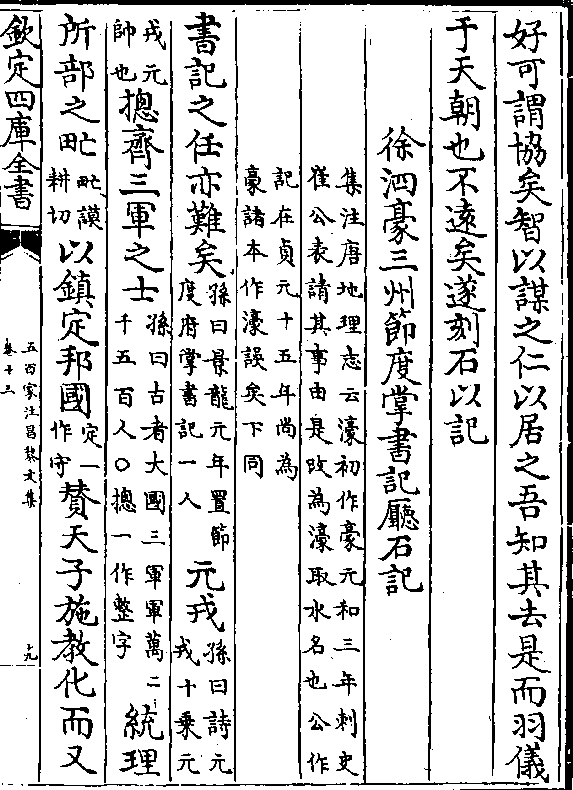 好可謂協矣智以謀之仁以居之吾知其去是而羽儀
于天朝也不遠矣遂刻石以記
徐泗豪三州節度掌書記廳石記
集注唐地理志云濠初作豪元和三年刺史
崔公表請其事由是改為濠取水名也公作
記在貞元十五年尚為
豪諸本作濠誤矣下同
書記之任亦難矣孫曰景龍元年置節度府掌書記一人元戎孫曰詩元戎十乗元
戎元帥也揔齊三軍之士孫曰古者大國三軍軍萬二千五百人〇揔一作整字統理
所部之甿甿謨耕切以鎮定邦國定一作守賛天子施教化而又
欽定四庫全書
五百家注昌黎文集
卷十三
十九